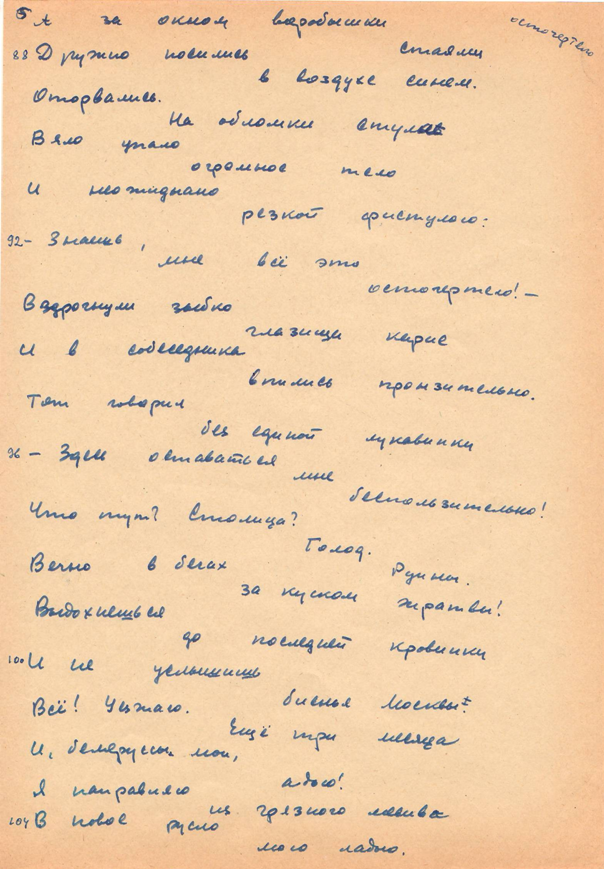 5 А за окном воробышки
осточертело
88 Дружно носились стаями
в воздухе синем.
Оторвались.
На обломки стула
Вяло упало
огромное тело
И неожиданно
резкой фистулою:
92 - Знаешь,
мне всё это
осточертело! -
Вздрогнули зыбко
глазищи карие
И в собеседника
впились пронзительно.
Тот говорил
без единой лукавинки
96 - Здесь оставаться
мне
беспользительно!
Что тут? Столица?
Голод.
Руины.
Вечно в бегах
за куском жратвы!
Выдохнешься
до последней кровинки
100 И не услышишь
биенья Москвы!
Всё! Уезжаю.
Ещё три месяца
И, белоруссы мои,
адью!
Я направляю
из грязного месива
104 В новое русло
мою ладью.